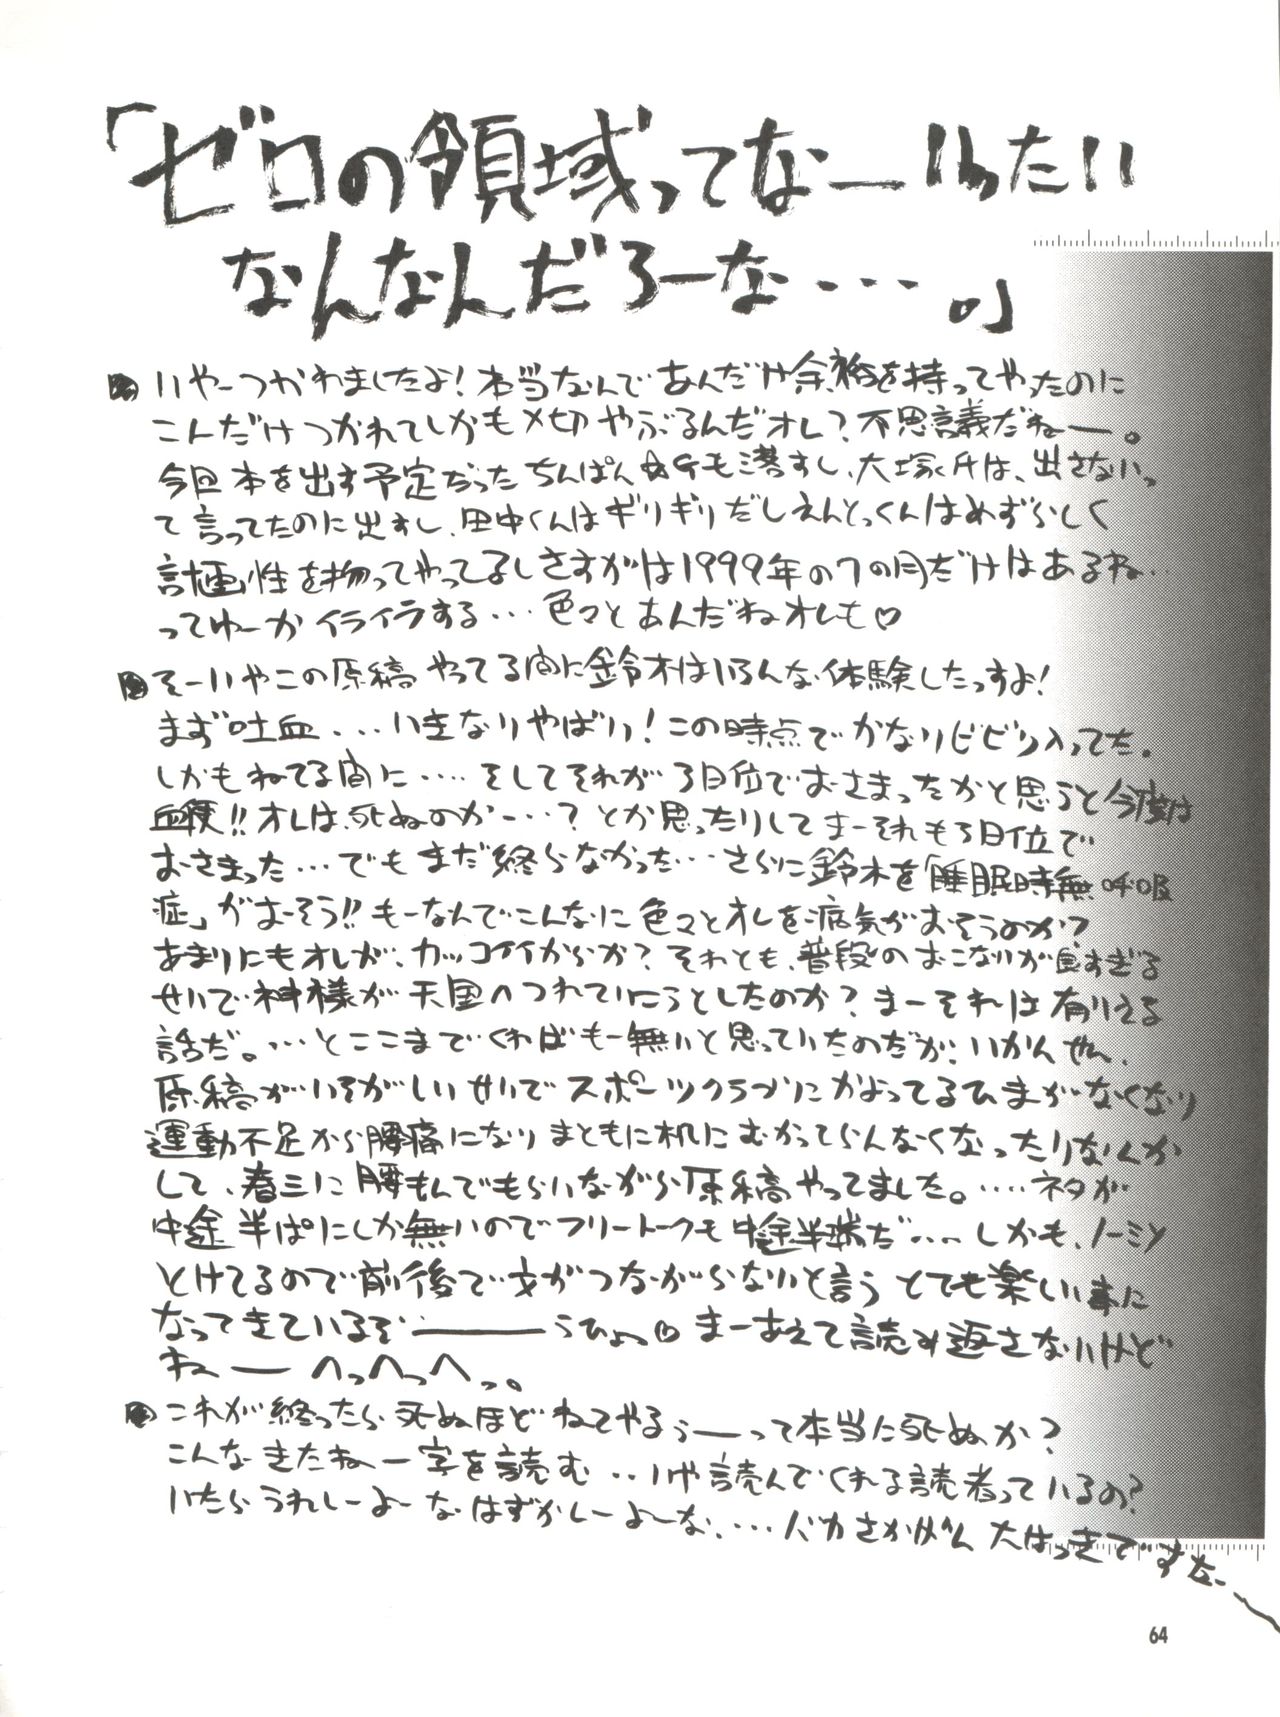 「ゼロの領域ってなーいったい
なんなんだろーな・・・。」
いやーつかれましたよ！本当なんであんだけ余裕を持ってやったのに
こんだけつかれてしかも〆切やぶるんだオレ？不思議だねー。
今回本を出す予定だったちんぱん☆Gも落すし、大塚氏は、出さないっ
て言ってたのに出すし、田中くんはギリギリだしえんどっくんはめずらしく
計画性を持ってやってるしさすがは1999年の7の月だけはあるね‥
ってゆーかイライラする・・・色々とあんだねオレも♡
そーいやこの原稿やってる間に鈴木はいろんな体験したっすよ！
まず吐血・・・いきなりやばいっ！この時点でかなりビビリ入ってた。
しかもねてる間に・・・・そしてそれが3日位でおさまったかと思うと今度は
血便!!オレは、死ぬのか・・・？とか思ったりしてまーそれも3日位で
おさまった・・・でもまだ終らなかった・・・さらに鈴木を「睡眠時無呼吸
症」がおそう!!もーなんでこんなに色々とオレを病気がおそうのか？
あまりにもオレが、カッコイイからか？それとも、普段のおこないが良すぎる
せいで神様が天国へつれていこうとしたのか？まーそれは有りえる
話だ。・・・とここまでくればもー無いと思っていたのだが、いかんせん、
原稿がいそがしいせいでスポーツクラブにかよってるひまがなくなり
運動不足から腰痛になりまともに机にむかってらんなくなったりなんか
して、春三に腰もんでもらいながら原稿やってました。・・・・ネタが
中途半ぱにしか無いのでフリートークも中途半端だ・・・しかも、ノーミソ
とけてるので前後で文がつながらないと言うとても楽しい事に
なってきているぞ――うひょっ♡まーあえて読み返さないけど
ねーへっへっへっ。
これが終ったら死ぬほどねてやるぅーって本当に死ぬか？
こんなきたねー字を読む‥いや読んでくれる読者っているの？
いたらうれしーよーなはずかしーよーな、・・・バカさかげん大はっきですなー
64